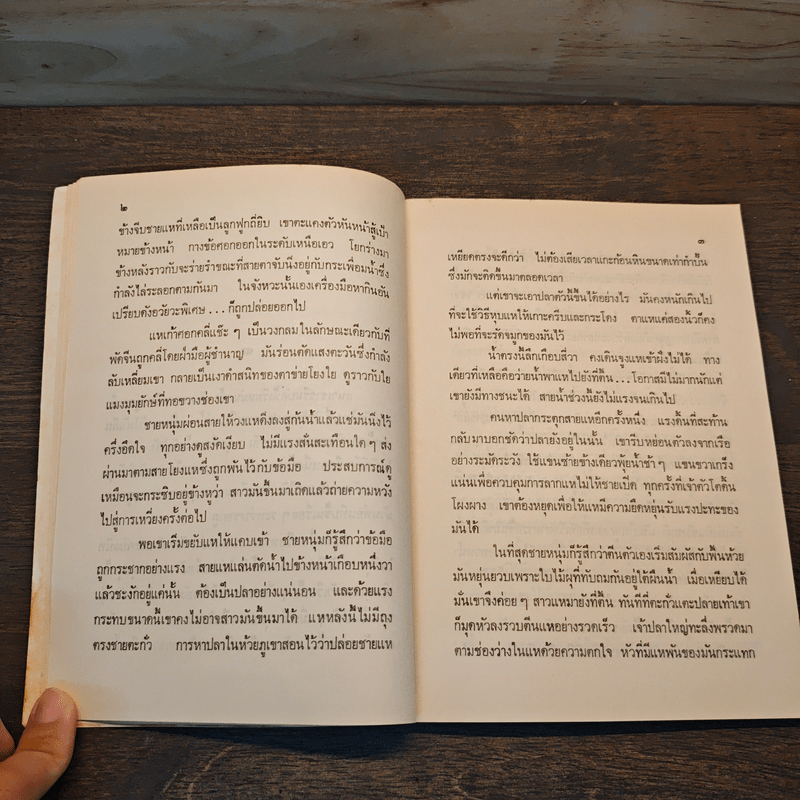 ๒
ข้างจีบชายแหที่เหลือเป็นลูกฟูกถี่ยิบ เขาตะแคงตัวหันหน้าสู้เป้า
หมายข้างหน้า กางข้อศอกออกในระดับเหนือเอว โยกร่างมา
ข้างหลังราวกับจะร่ายรำขณะที่สายตาจับนิ่งอยู่กับกระเพื่อมน้ำซึ่ง
กำลังไล่ระลอกตามกันมา ในจังหวะนั้นเองเครื่องมือหากินอัน
เปรียบดังอวัยวะพิเศษ...ก็ถูกปล่อยออกไป
แหเก้าศอกคลี่แช๊ะ ๆ เป็นวงกลม ในลักษณะเดียวกับที่
พัดจีนถูกคลี่โดยฝ่ามือผู้ชำนาญ มันร่อนตัดแสงตะวันซึ่งกำลัง
ลับเหลี่ยมเขา กลายเป็นเงาดำสนิทของตาข่ายโยงใย ดูราวกับใย
แมงมุมยักษ์ที่ทอขวางช่องเขา
ชายหนุ่มผ่อนสายให้วงแหดิ่งลงสู่ก้นน้ำแล้วแช่มันนิ่งไว้
ครึ่งอึดใจ ทุกอย่างดูสงัดเงียบ ไม่มีแรงสั่นสะเทือนใด ๆ ส่ง
ผ่านมาตามสายโยงแหซึ่งถูกพันไว้กับข้อมือ ประสบการณ์ดู
เหมือนจะกระซิบอยู่ข้างหูว่า สาวมันขึ้นมาเถิดแล้วถ่ายความหวัง
ไปสู่การเหวี่ยงครั้งต่อไป
พอเขาเริ่มขยับแหให้แคบเข้า ชายหนุ่มก็รู้สึกว่าข้อมือ
ถูกกระชากอย่างแรง สายแหแล่นตัดน้ำไปข้างหน้าเกือบหนึ่งวา
แล้วชะงักอยู่แค่นั้น ต้องเป็นปลาอย่างแน่นอน และด้วยแรง
กระทบขนาดนี้เขาคงไม่อาจสาวมันขึ้นมาได้ แหหลังนี้ไม่มีถุง
ตรงชายตะกั่ว การหาปลาในห้วยภูเขาสอนไว้ว่าปล่อยชายแห
๓
เหยียดตรงจะดีกว่า ไม่ต้องเสียเวลาแกะก้อนหินขนาดเท่ากำปั้น
ซึ่งมักจะติดขึ้นมาตลอดเวลา
แต่เขาจะเอาปลาตัวนี้ขึ้นได้อย่างไร มันคงหนักเกินไป
ที่จะใช้วิธีหุบแหให้เกาะครีบและกระโดง ตาแหแค่สองนิ้วก็คง
ไม่พอที่จะรัดจมูกของมันไว้
น้ำตรงนี้ลึกเกือบสี่วา คงเดินจูงแหเข้าฝั่งไม่ได้ ทาง
เดียวที่เหลือคือว่ายน้ำพาแหไปยังที่ตื้น...โอกาสมีไม่มากนักแต่
เขายังมีทางชนะได้ สายน้ำช่วงนี้ยังไม่แรงจนเกินไป
คนหาปลากระตุกสายแหอีกครั้งหนึ่ง แรงดิ้นที่สะท้าน
กลับมาบอกชัดว่าปลายังอยู่ในนั้น เขารีบหย่อนตัวลงจากเรือ
อย่างระมัดระวัง ใช้แขนซ้ายข้างเดียวพุ้ยน้ำช้า ๆ แขนขวาเกร็ง
แน่นเพื่อควบคุมการลากแหไม่ให้ชายเปิด ทุกครั้งที่เจ้าตัวโตดิ้น
โผงผาง เขาต้องหยุดเพื่อให้แหมีความยืดหยุ่นรับแรงปะทะของ
มันได้
ในที่สุดชายหนุ่มก็รู้สึกว่าตีนตัวเองเริ่มสัมผัสกับพื้นห้วย
มันหยุ่นยวบเพราะใบไม้ผุที่ทับถมกันอยู่ใต้ผืนน้ำ เมื่อเหยียบได้
มั่นเขาจึงค่อย ๆ สาวแหมายังที่ตื้น ทันทีที่ตะกั่วแตะปลายเท้าเขา
ก็มุดหัวลงรวบตีนแหอย่างรวดเร็ว เจ้าปลาใหญ่ทะลึ่งพรวดมา
ตามช่องว่างในแหด้วยความตกใจ หัวที่มีแหพันของมันกระแทก